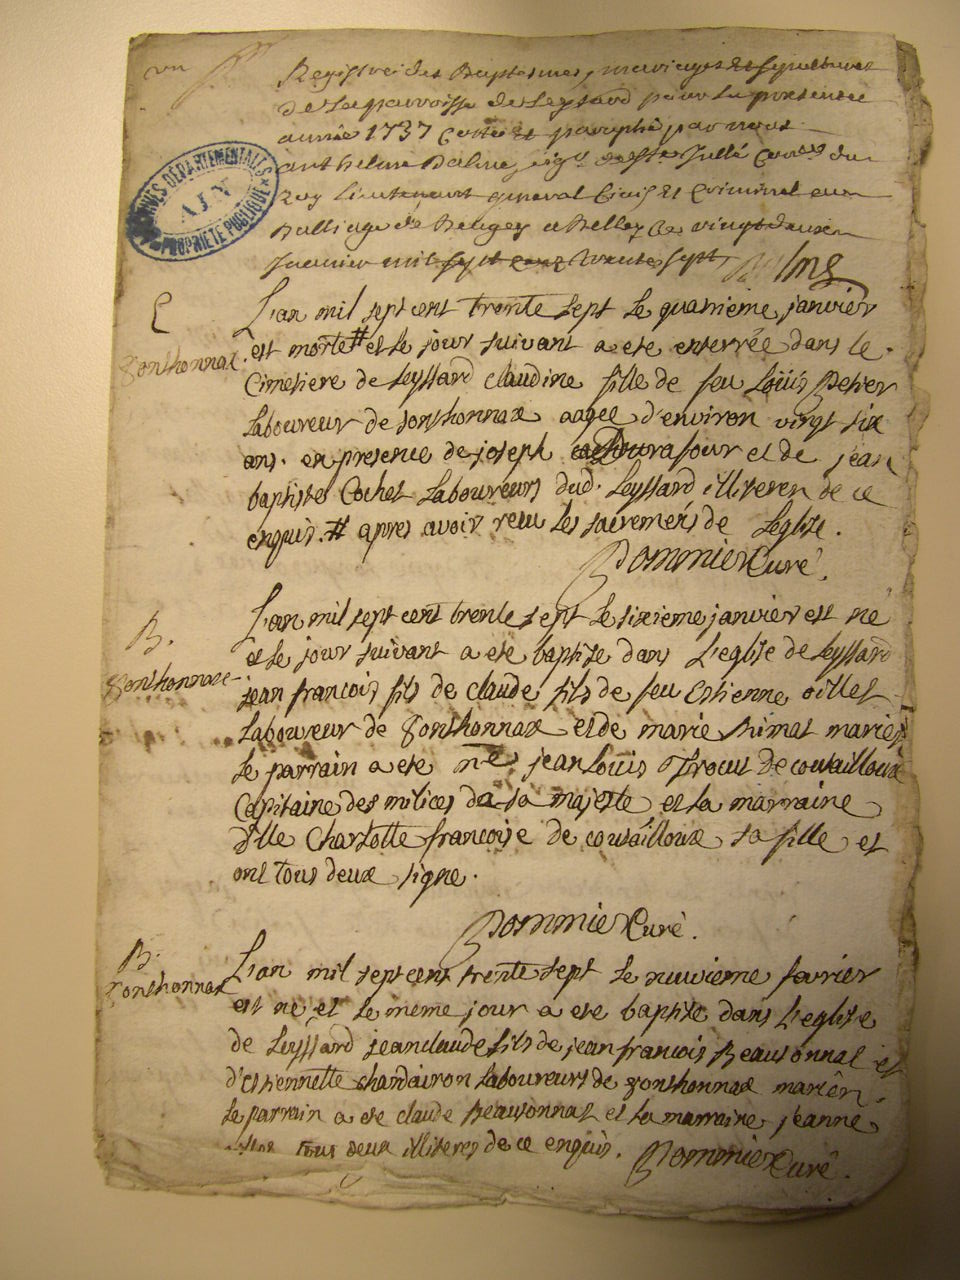 vn
Registre des Baptesmes, mariages et sepultures
de la parroisse de Leyssard pour la presente
année 1737 Cotté et paraphé par nous
anthelme Balme du
Roy Lieutenant general Civil et Criminel au
Balliage de Beugey a Belley ce vingt deux
Janvier mil sept cent trente sept Balme
ARCHIVES DÉPARTEMENTALES
AIN
PROPRIÉTÉ PUBLIQUE
L'an mil sept cent trente sept le quatrieme janvier
est morte # et le jour suivant a ete enterrée dans le
Cimetiere de Leyssard claudine fille de feu Loüis
Laboureur de sonthonnax aagee d'environ vingt six
ans. en presence de joseph Durafour et de jean
baptiste Cochet Laboureurs dud. Leyssard illiteren de ce
enquis. # apres avoir recu les sacremens de Leglise.
Pommier Curé.
Sonthonnax
L'an mil sept cent trente sept le sixieme janvier est né
et le jour suivant a ete baptise dans L'eglise de Leyssard
jean francois fils de claude fils de feu Estienne oillet
Laboureur de Sonthonnax et de marie mariés
le parrain a ete jean Louis De couvailloux
Capitaine des milices de sa majesté et la marraine
dlle Charlotte francoise de couvailloux sa fille et
ont tous deux signe.
Pommier Curé.
B.
Sonthonnax
L'an mil sept cent trente sept le neuvieme fevrier
est né et le meme jour a ete baptise dans L'eglise
de Leyssard jeanclaude fils de jean francois Beauvonnat et
d'Estiennette Laboureurs de sonthonnax mariên.
le parrain a ete claude Beauvonnat et la marraine jeanne
tous deux illiteres de ce enquis. Pommier Curé.
B.
Sonthonnax